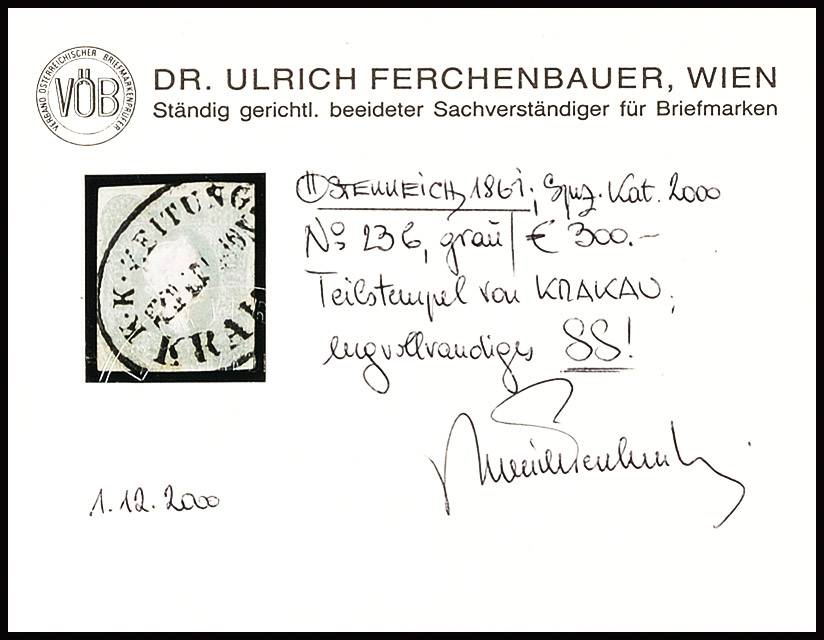 VERBAND ÖSTERREICHISCHER BRIEFMARKENPRÜFER
VÖB
DR. ULRICH FERCHENBAUER, WIEN
Ständig gerichtl. beeideter Sachverständiger für Briefmarken
K.K. ZEITUNGS
KRAK
ÖSTERREICH, 1861; Spez. Kat. 2000
No 23b, grau € 300.-
Teilstempel von KRAKAU,
engvollrandiges SS!
1.12.2000